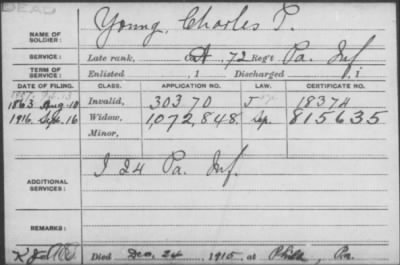 DEAD
NAME OF SOLDIER: Young, Charles P.
SERVICE: Late rank, Co. A, 72 Reg't Pa. Inf.
TERM OF SERVICE: Enlisted , 1 Discharged , 1
DATE OF FILING. CLASS. APPLICATION NO. LAW. CERTIFICATE NO.
1863 Aug. 10 Invalid, 30370 18374
1916. Sept. 16 Widow, 1,072,848 Sep. 815635
Minor,
ADDITIONAL SERVICES: I 24 Pa. Inf.
REMARKS:
Died Dec. 24 1915, at Phila, Pa.